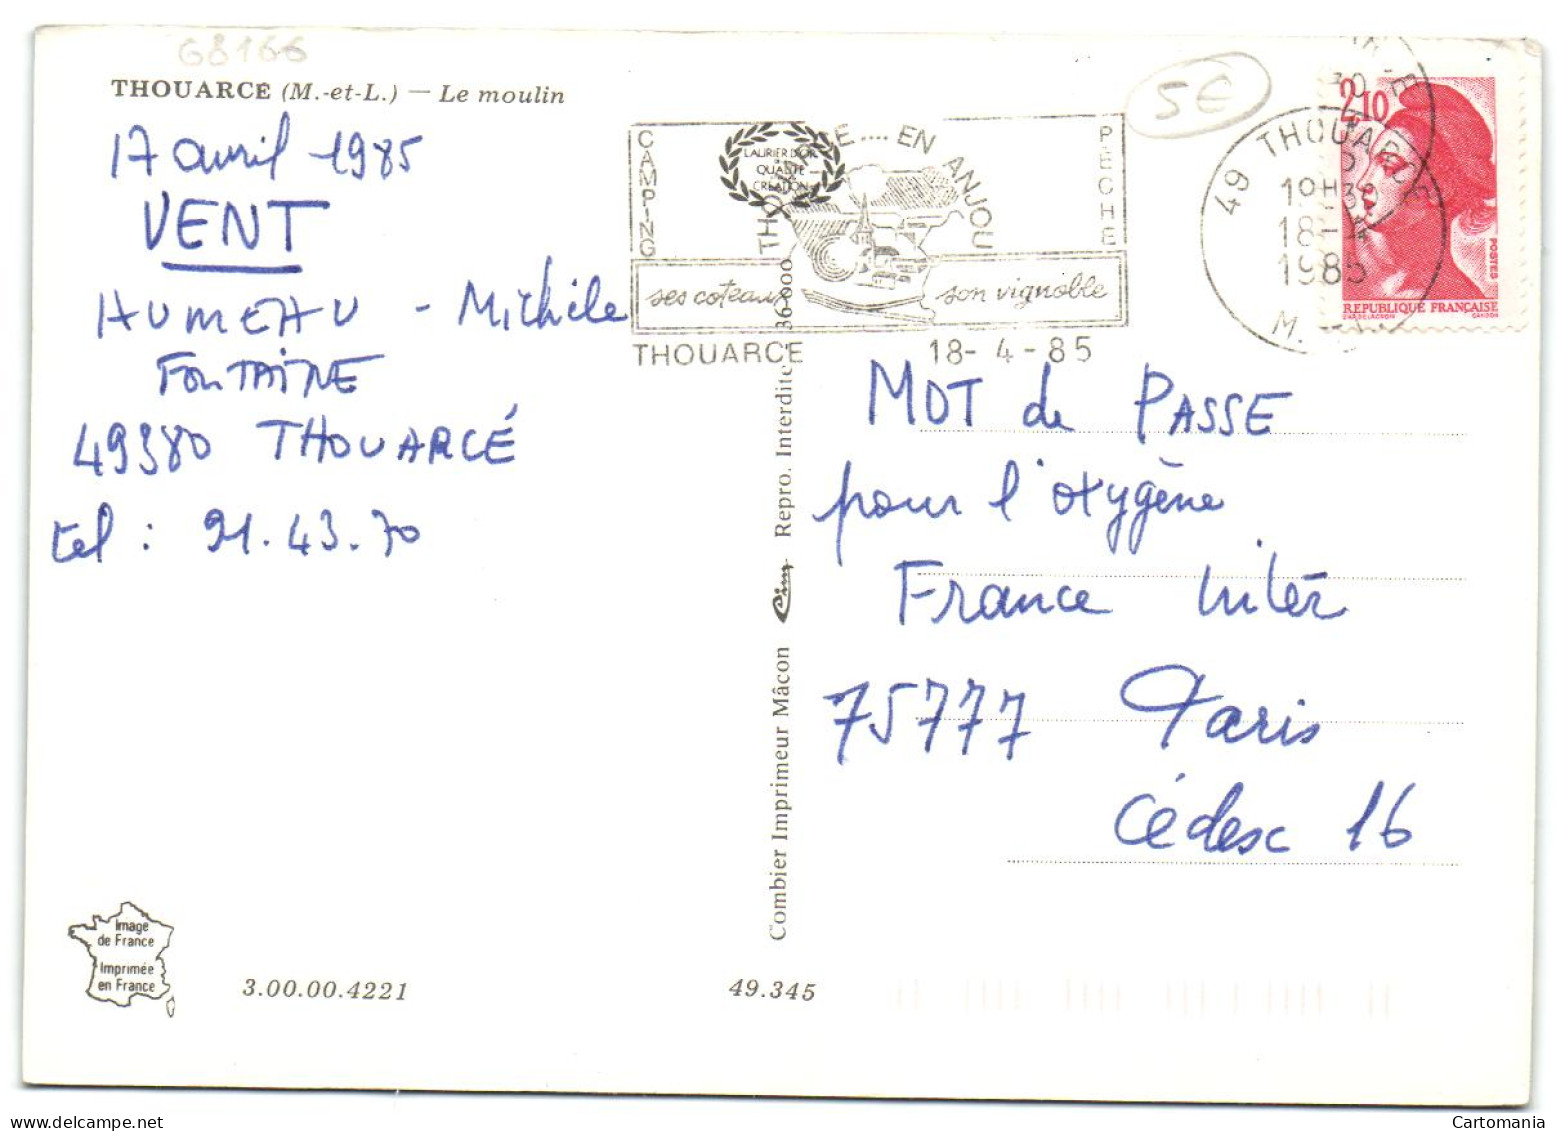 68166
THOUARCE (M.-et-L.) — Le moulin
17 avril 1985
VENT
HUMEAU - Michèle
FONTAINE
49380 THOUARCÉ
tel : 91.43.70
CAMPING
THOUARCE.... EN ANJOU
PECHE
LAURIER D'OR
QUALITÉ
CRÉATION
ses coteaux son vignoble
THOUARCE 18-4-85
5€
49 THOUARCE
18-4
1985
2,10
POSTES
REPUBLIQUE FRANÇAISE
MOT de PASSE
pour l'oxygène
France Inter
75777 Paris
Cédesc 16
Combier Imprimeur Mâcon Cim Repro. Interdite 36 000
Image
de France
Imprimée
en France
3.00.00.4221
49.345
Cartomania